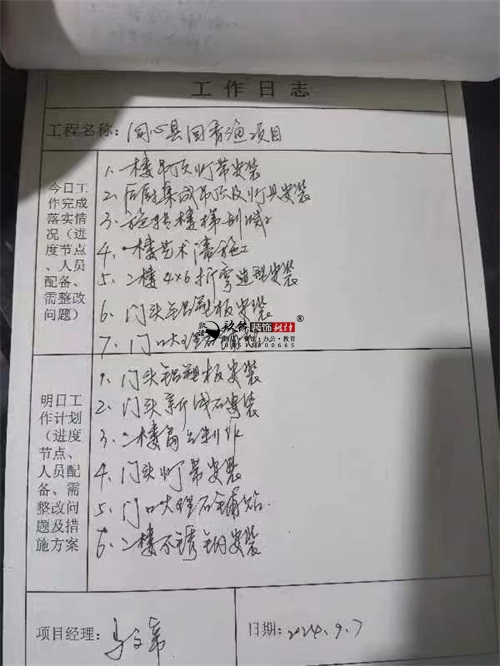 工作日志
工程名称: 同心县回香渔项目
今日工作完成落实情况(进度节点、人员配备、需整改问题)
1、一楼吊顶灯带安装
2、后厨集成吊顶及灯具安装
3、旋转楼梯
4、一楼艺术漆施工
5、二楼4×6折弯造型安装
6、门头铝塑板安装
7、门口大理石
装饰设计®
明日工作计划(进度节点、人员配备、需整改问题及措施方案
1、门头铝塑板安装
2、门头新城石安装
3、二楼
4、门头灯带安装
5、门口大理石铺贴
6、二楼不锈钢安装
项目经理:
日期: 2024.9.7